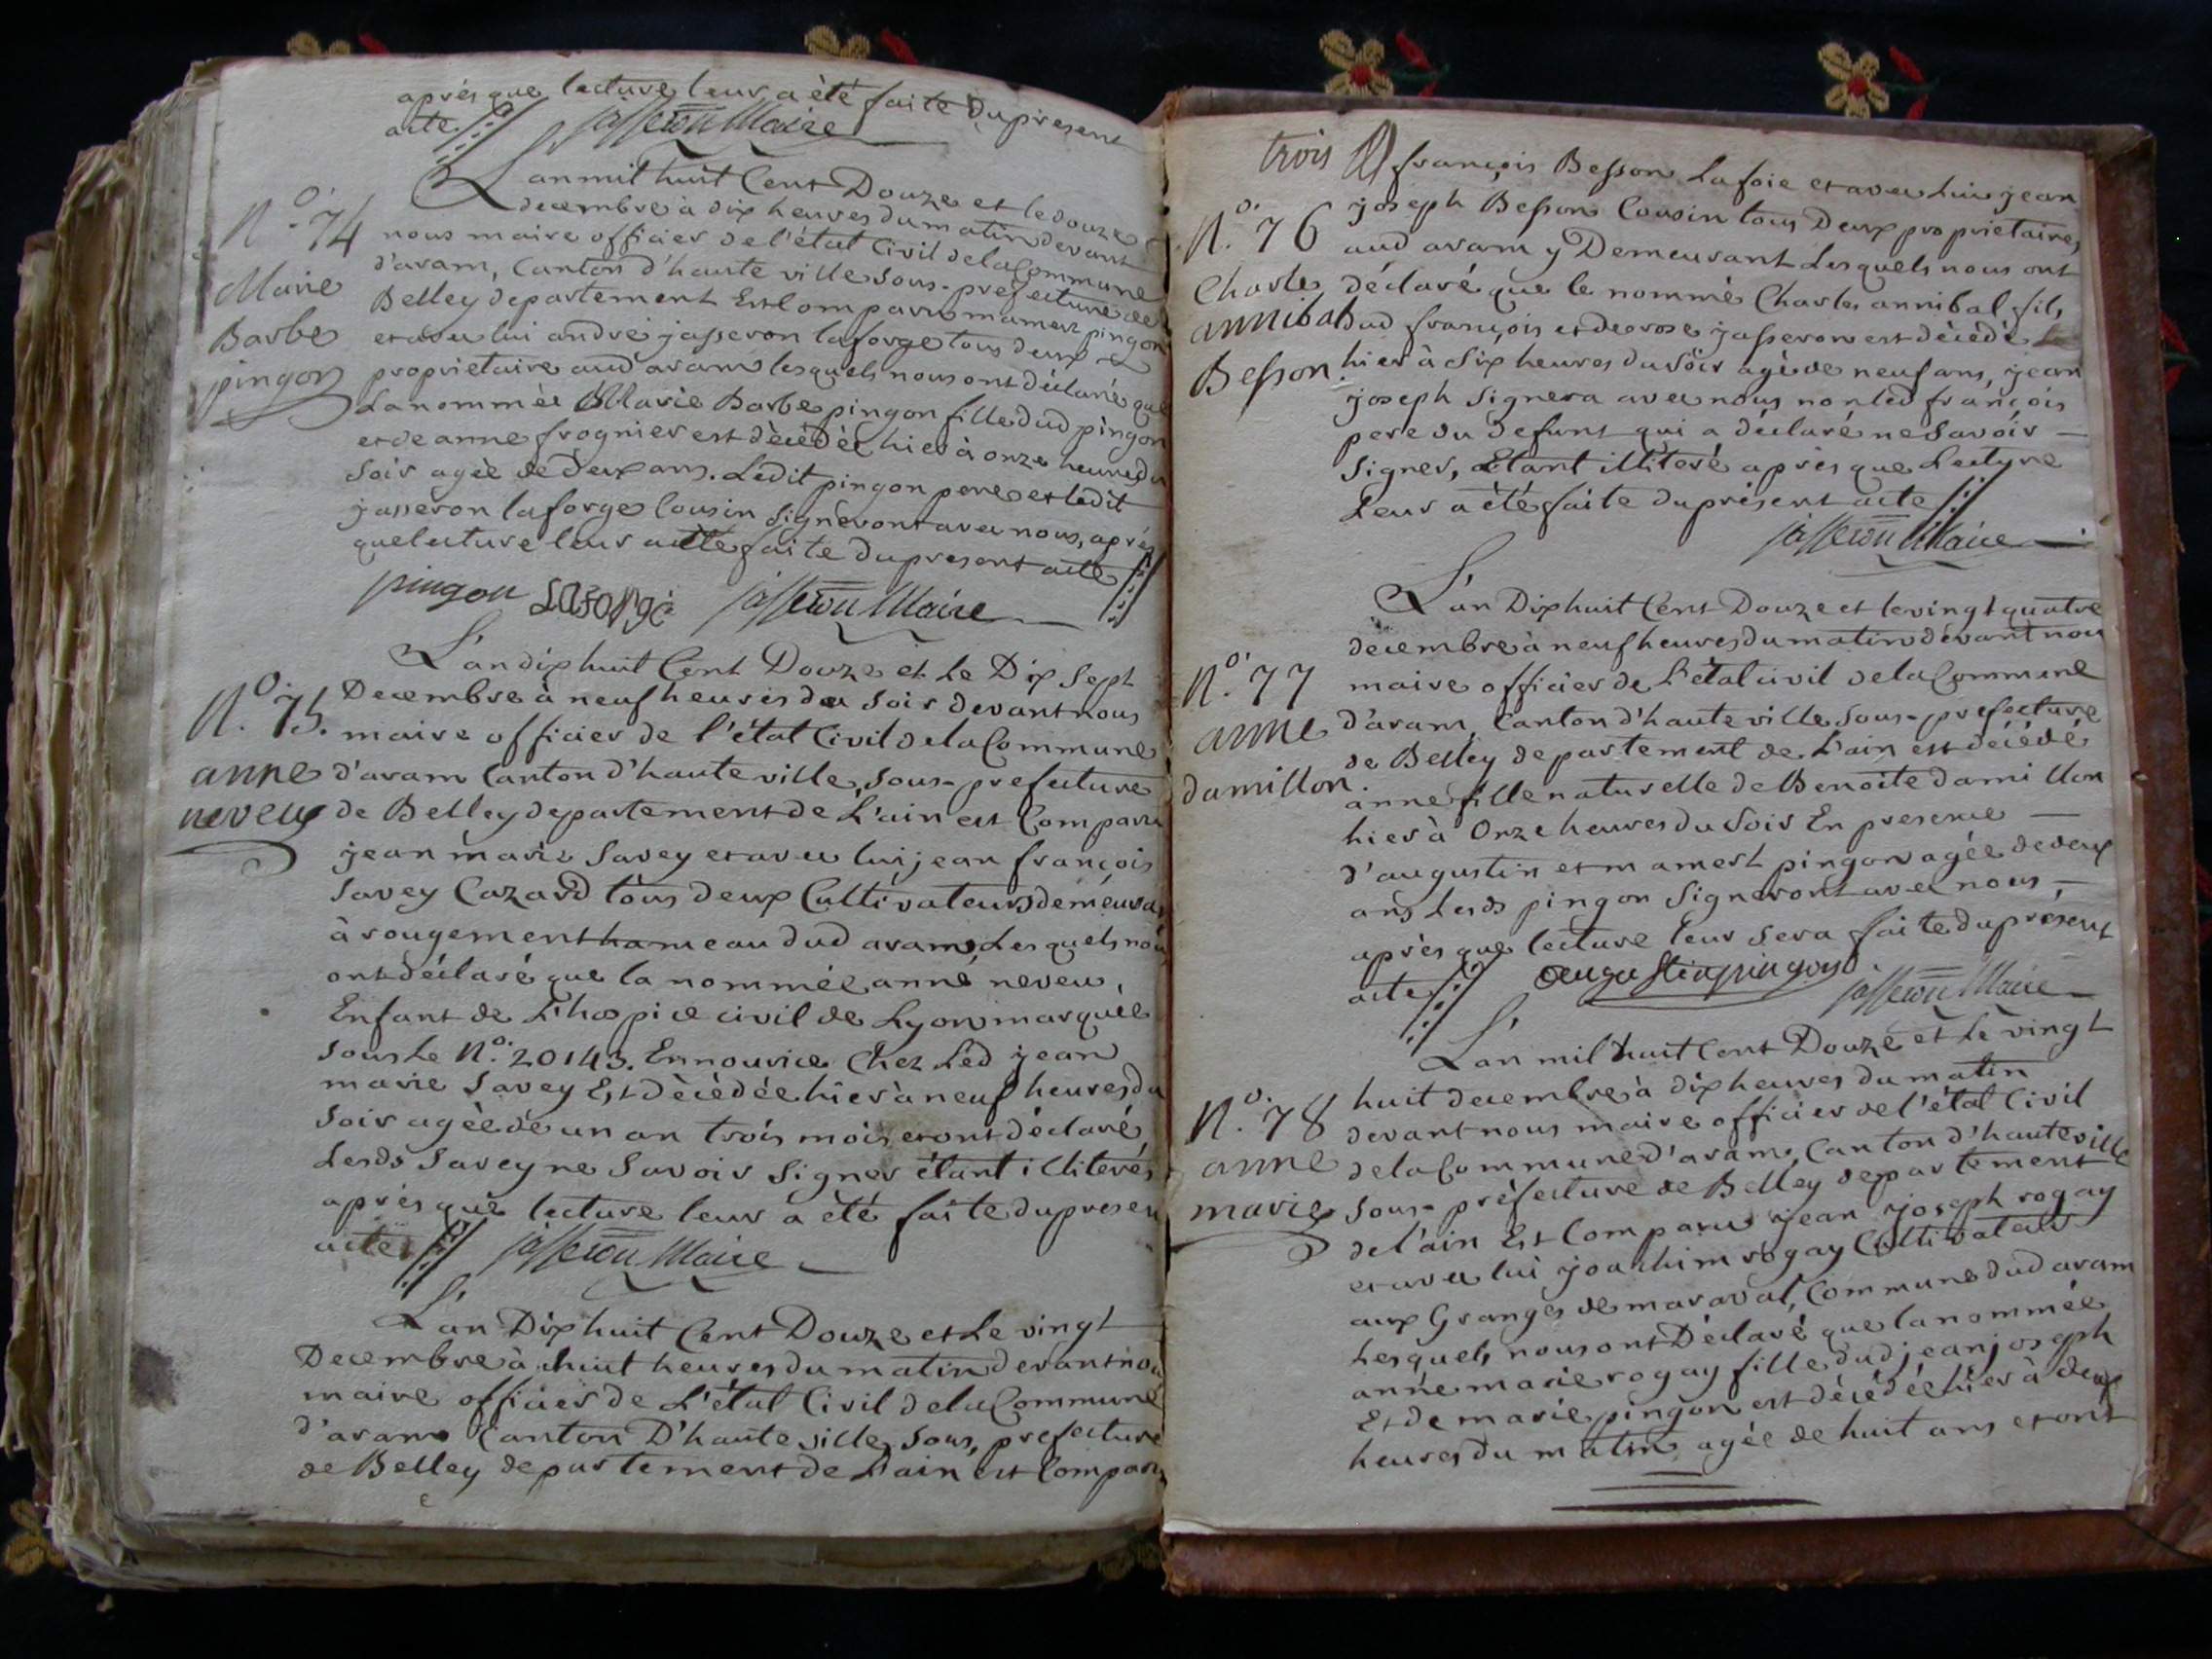 après que lecture leur a été faite du present
acte
jasseron Maire
L'an mil huit Cent Douze et le douze
decembre à dix heures du matin devant
N.o 74
nous maire officier de l'état Civil de la Commune
d'aram, Canton d'haute ville sous-prefecture de
Marie
Belley departement Est Comparu mamert pingon
Barbe
et avec lui andré jasseron laforge tous deux
pingon
proprietaire aud aram lesquels nous ont déclaré que
La nommée Marie Barbe pingon fille dud pingon
et de anne frognier est décédée hier à onze heures du
Soir agée de deux ans. Ledit pingon pere et ledit
jasseron laforge Cousin Signeront avec nous, après
que lecture leur a été faite du present acte
pingon Laforge jasseron Maire
L'an dix huit Cent Douze et le Dix Sept
N.o 75.
Decembre à neuf heures du Soir devant nous
maire officier de l'état Civil de la Commune
anne
d'aram Canton d'haute ville, Sous-prefecture
neveu
de Belley departement de L'ain est Comparu
jean marie Savey et avec lui jean françois
Savey Cazard tous deux Cultivateurs demeurant
à rougemont hameau dud aram Lesquels nous
ont déclaré que la nommée anne neveu,
Enfant de L'hospice civil de Lyon marquée
sous Le N.o 20143. En nourice Chez Led jean
marie Savey Est Décédée hier à neuf heures du
Soir agée de un an trois mois et ont déclaré
Lesds Savey ne Savoir Signer étant illiterés
après que lecture leur a été faite du present
acte
jasseron Maire
L'an Dix huit Cent Douze et Le vingt
Decembre à huit heures du matin devant nous
maire officier de L'état Civil de la Commune
d'aram Canton D'haute ville, Sous, prefecture
de Belley departement de L'ain est Comparu
trois
françois Besson Lafoie et avec Lui jean
N.o 76
joseph Besson Cousin tous Deux proprietaires
aud aram y Demeurant Lesquels nous ont
Charles
déclaré que le nommé Charles annibal fils
annibal
dud françois et de rose jasseron est décédé
Besson.
hier à Six heures du Soir agé de neuf ans, jean
joseph Signera avec nous non led françois
pere du defunt qui a déclaré ne Savoir
Signer, Etant illiteré après que Lecture
Leur a été faite du présent acte
jasseron Maire
L'an Dix huit Cent Douze et le vingt quatre
decembre à neuf heures du matin devant nous
N.o 77
maire officier de L'état civil de la Commune
anne
d'aram, Canton d'haute ville Sous-prefecture
de Belley departement de L'ain est décédé
damillon.
anne fille naturelle de Benoite damillon
hier à Onze heures du Soir En presence
d'augustin et mamert pingon agée de deux
ans Lesds pingon Signeront avec nous,
après que lecture leur sera faite du présent
acte
augustin pingon
jasseron Maire
L'an mil huit Cent Douze et Le vingt
huit decembre à dix heures du matin
N.o 78
devant nous maire officier de l'état Civil
anne
de la Commune d'aram, Canton d'haute ville
marie
Sous-préfecture de Belley departement
de l'ain Est Comparu jean joseph rogay
et avec lui joachim rogay Cultivateurs
aux Granges de maraval, Commune dud aram
Lesquels nous ont Déclaré que la nommée
anne marie rogay fille dud jean joseph
Et de marie pingon est décédée hier à deux
heures du matin agée de huit ans et ont